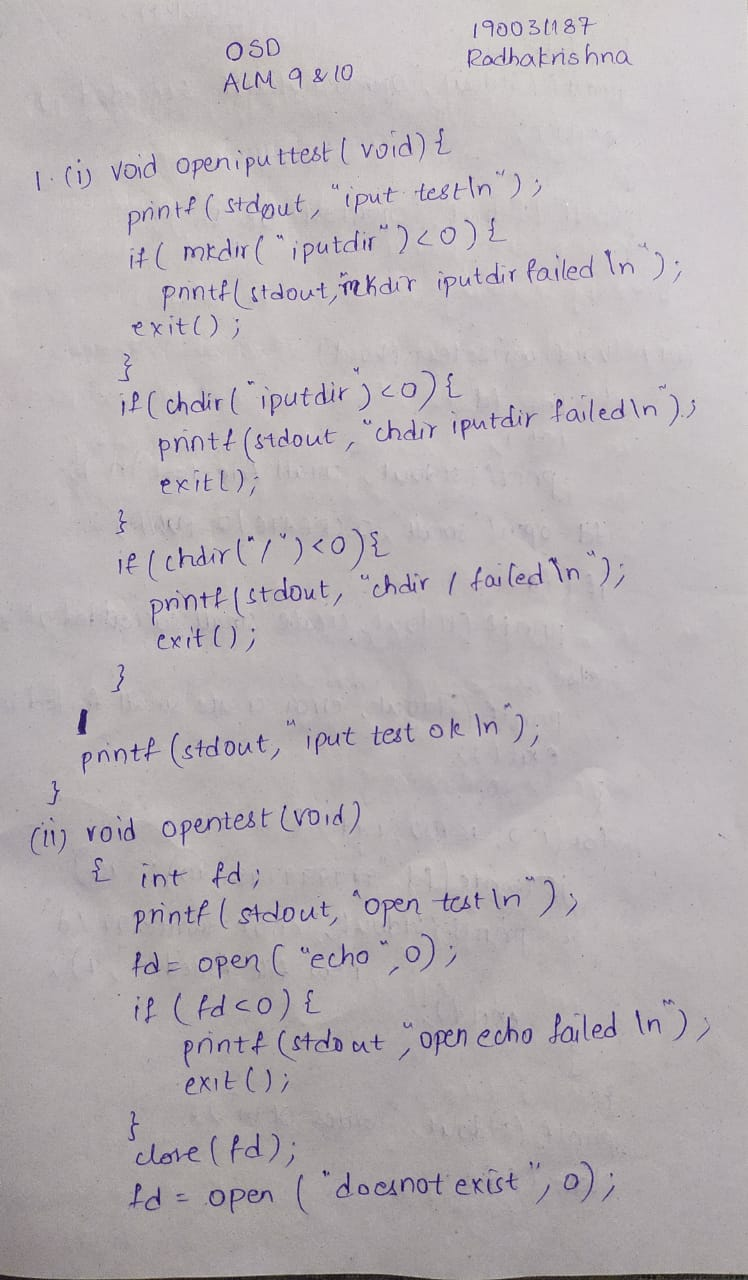 OSD
ALM 9 & 10
190031187
Radhakrishna
1. (i) void openiputtest (void) {
printf (stdout, "iput test\n");
if ( mkdir( "iputdir") <0) {
printf(stdout, mkdir iputdir failed \n");
exit();
}
if ( chdir( "iputdir") <0) {
printf (stdout, "chdir iputdir failed\n");
exit();
}
if (chdir("/") <0){
printf (stdout, "chdir / failed \n");
exit();
}
printf (stdout, "iput test ok \n");
}
(ii) void opentest (void)
{ int fd;
printf ( stdout, "open test \n");
fd = open ( "echo", 0);
if (fd <0) {
printf (stdout, "open echo failed \n");
exit();
}
close (fd);
fd = open ( "doesnot exist", 0);